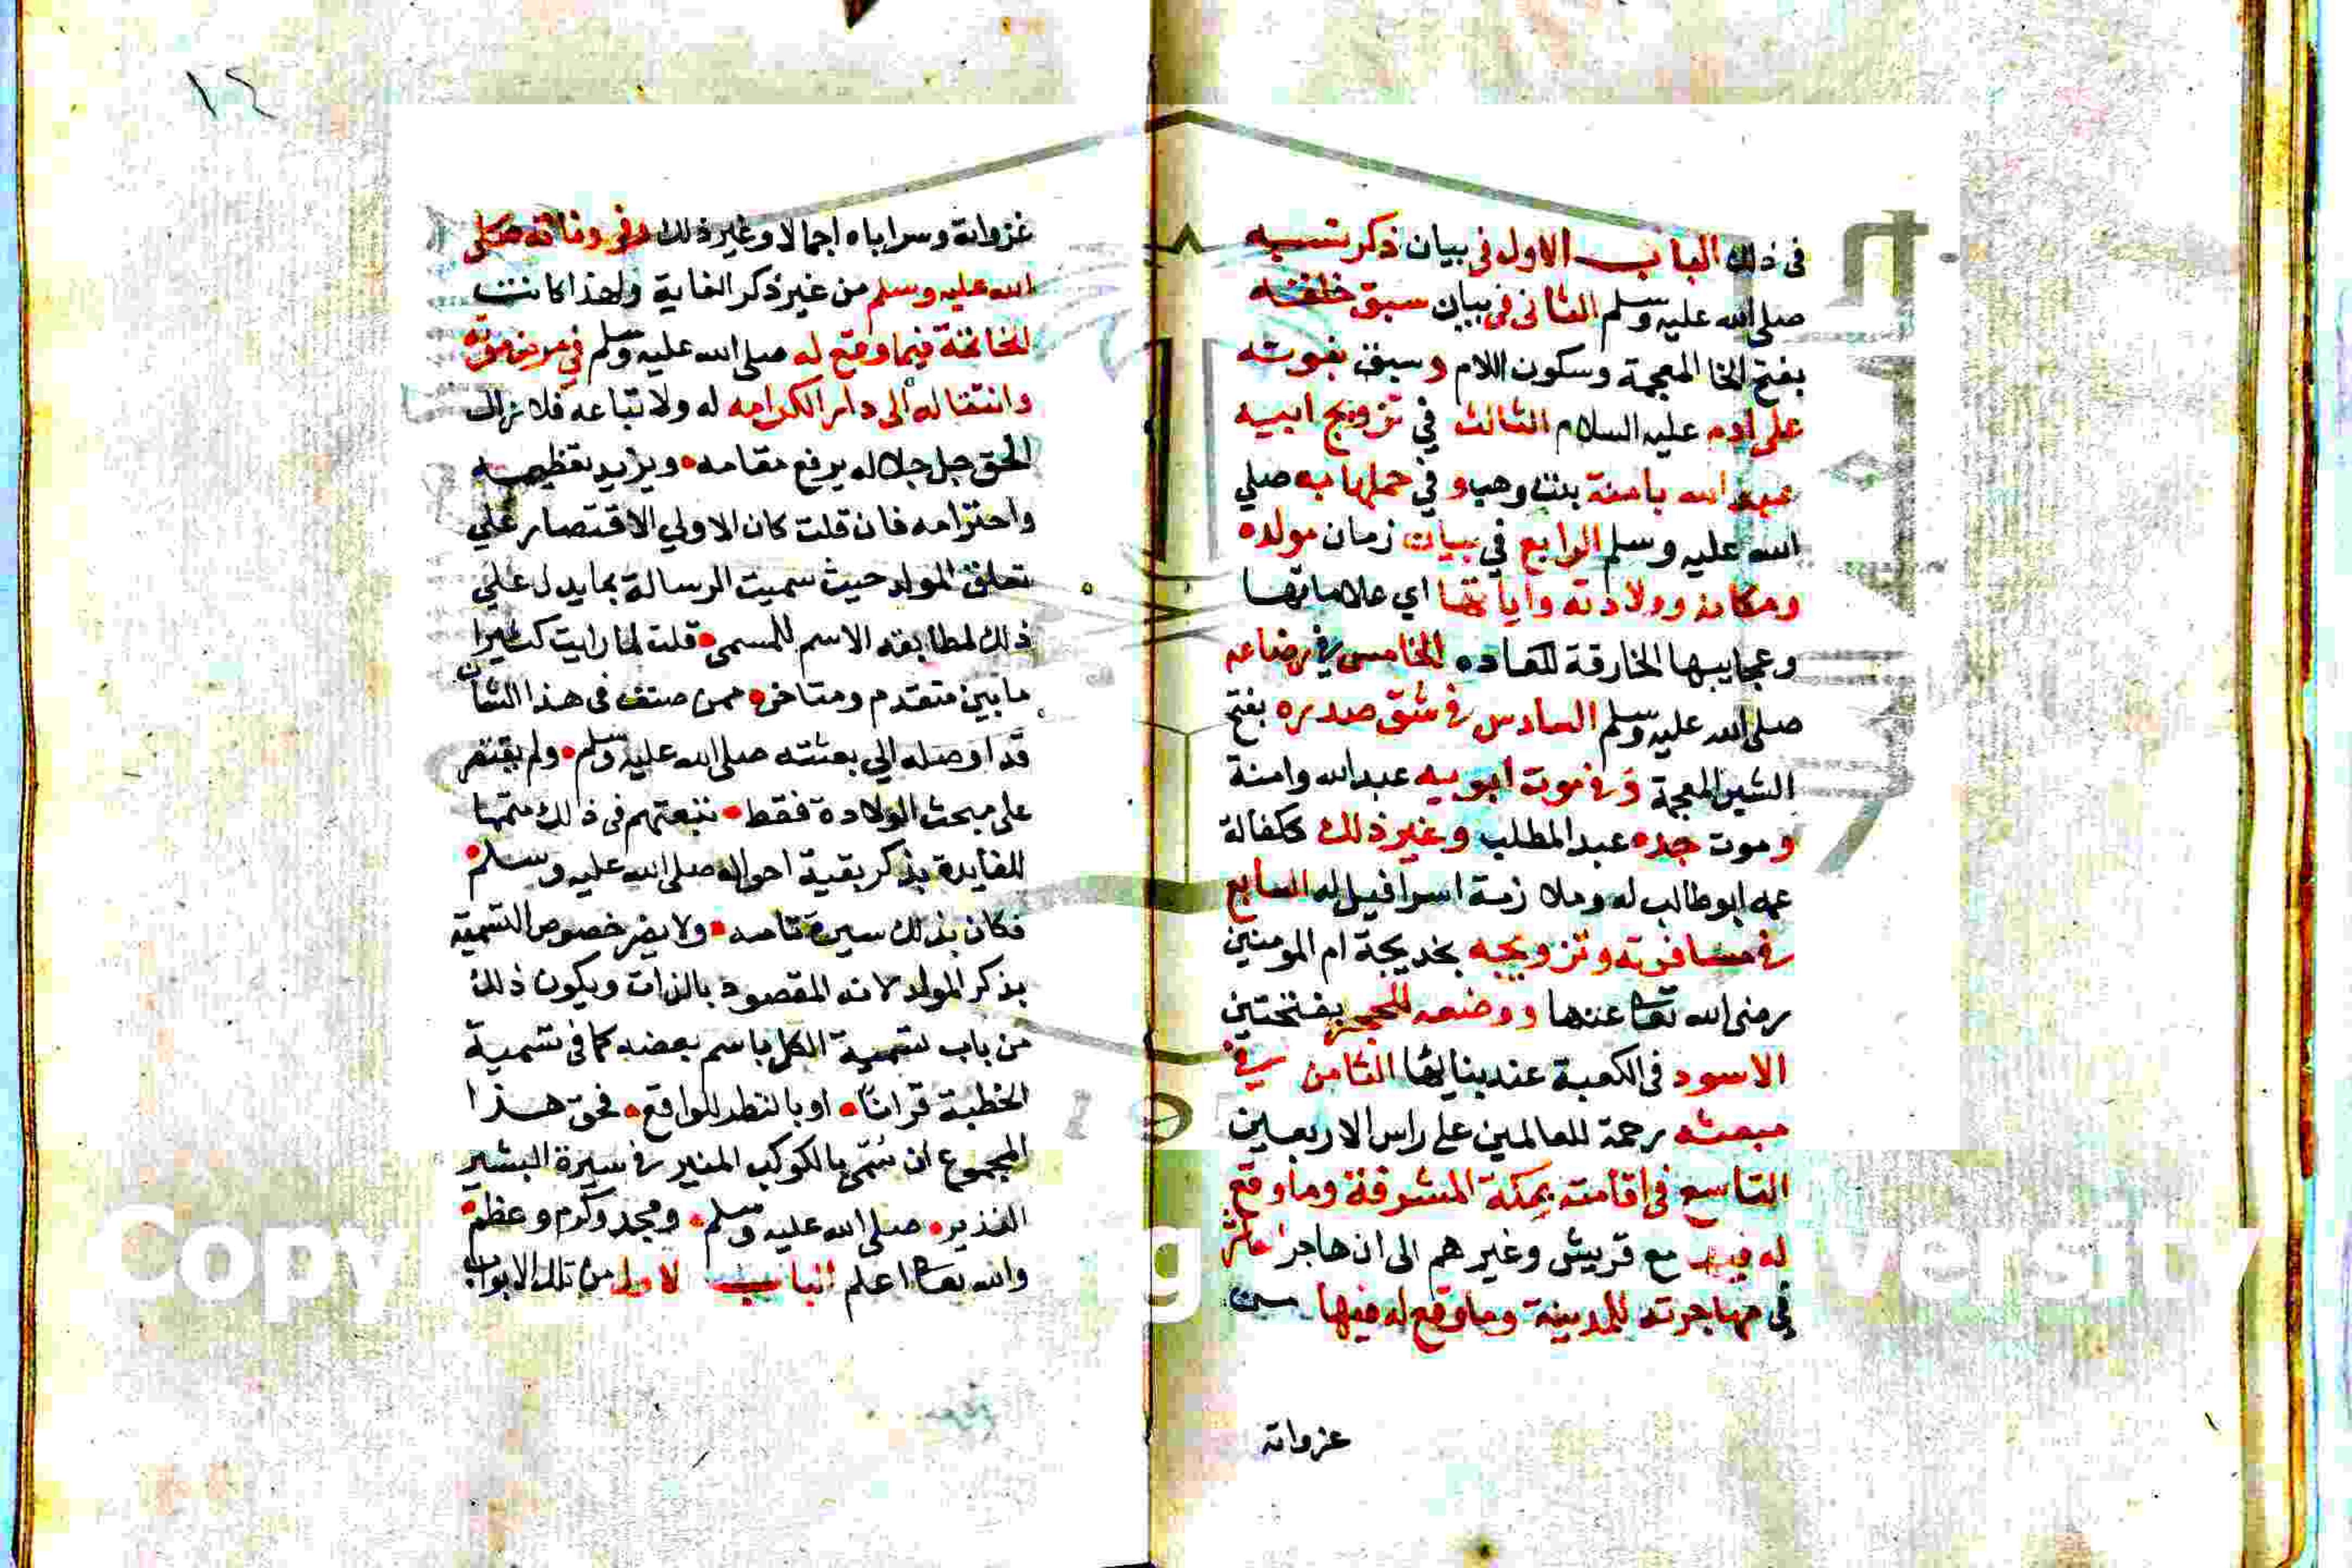 فى ذلك الباب الاول فى بيان ذكر نسبه
صلى الله عليه وسلم الثانى فى بيان سبق خلقته
بفتح الخا المعجمة وسكون اللام وسبق نبوته
على ادم عليه السلام الثالث في تزويج ابيه
عبد الله بامنة بنت وهب و في حملها به صلي
الله عليه وسلم الرابع في بيان زمان مولده
ومكانه وولادته واياتها اي علاماتها
وعجايبها الخارقة للعاده الخامس في رضاعه
صلى الله عليه وسلم السادس في شق صدره بفتح
الشين المعجمة و في موت ابويه عبدالله وامنة
وموت جده عبدالمطلب وغير ذلك ككفالة
عمه ابوطالب له وملازمة اسرافيل له السابع
في مسافرته وتزويجه بخديجة ام المومنين
رضى الله تعا عنها ووضعه للحجر بفتحتين
الاسود فى الكعبة عند بنائها الثامن في
مبعثه رحمة للعالمين على راس الاربعين
التاسع فى اقامته بمكة المشرفة وما وقع
له فيها مع قريش وغيرهم الى ان هاجر
في مهاجرته للمدينة وما وقع له فيها من
غزواته
١٤
غزواته وسراياه اجمالا وغير ذلك وفى وفاته صلى
الله عليه وسلم من غير ذكر الغاية ولهذا كانت
الخاتمة فيما وقع له صلى الله عليه وسلم في مرض موته
وانتقاله الى دار الكرامه له ولاتباعه فلا زال
الحق جل جلاله يرفع مقامه ويزيد تعظيمه
واحترامه فان قلت كان الاولي الاقتصار علي
تعلق المولد حيث سميت الرسالة بما يدل علي
ذلك لمطابقه الاسم للمسمى قلت لما رايت كثيرا
ما بين متقدم ومتاخر ممن صنف فى هذا الشان
قد اوصله الي بعثته صلى الله عليه وسلم ولم يقتصر
على مبحث الولادة فقط فتبعتهم فى ذلك متمما
للفايدة بذكر بقية احواله صلى الله عليه وسلم
فكان بذلك سيرة تامه ولا يضر خصوص التسمية
بذكر المولد لانه المقصود بالذات ويكون ذلك
من باب تسمية الكل باسم بعضه كما فى تسمية
الخطبة قرانا او بالنظر للواقع فحق هذا
المجموع ان تسمى بالكوكب المنير في سيرة البشير
النذير صلى الله عليه وسلم ومجد وكرم وعظم
والله تعا اعلم الباب الاول من تلك الابواب
Copy g versity